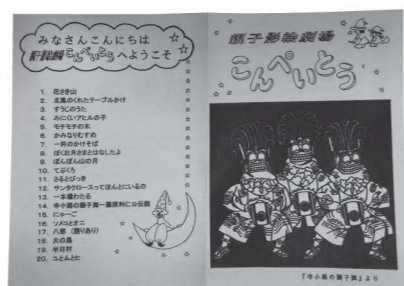 みなさんこんにちは
親子影絵劇場こんぺいとうへようこそ
1. 花さき山
2. 北風のくれたテーブルかけ
3. すうじのうた
4. みにくいアヒルの子
5. モチモチの木
6. かみなりむすめ
7. 一杯のかけそば
8. ぼくお月さまとはなしたよ
9. ぽんぽん山の月
10. てぶくろ
11. さるとびっき
12. サンタクロースってほんとにいるの
13. 一本橋わたる
14. 寺小路の獅子舞〜藤原利仁公伝説
15. にゃーご
16. ソメコとオニ
17. 八郎（語りあり）
18. 火の鳥
19. 半日村
20. ユとムとヒ
親子影絵劇場
こんぺいとう
『寺小路の獅子舞』より